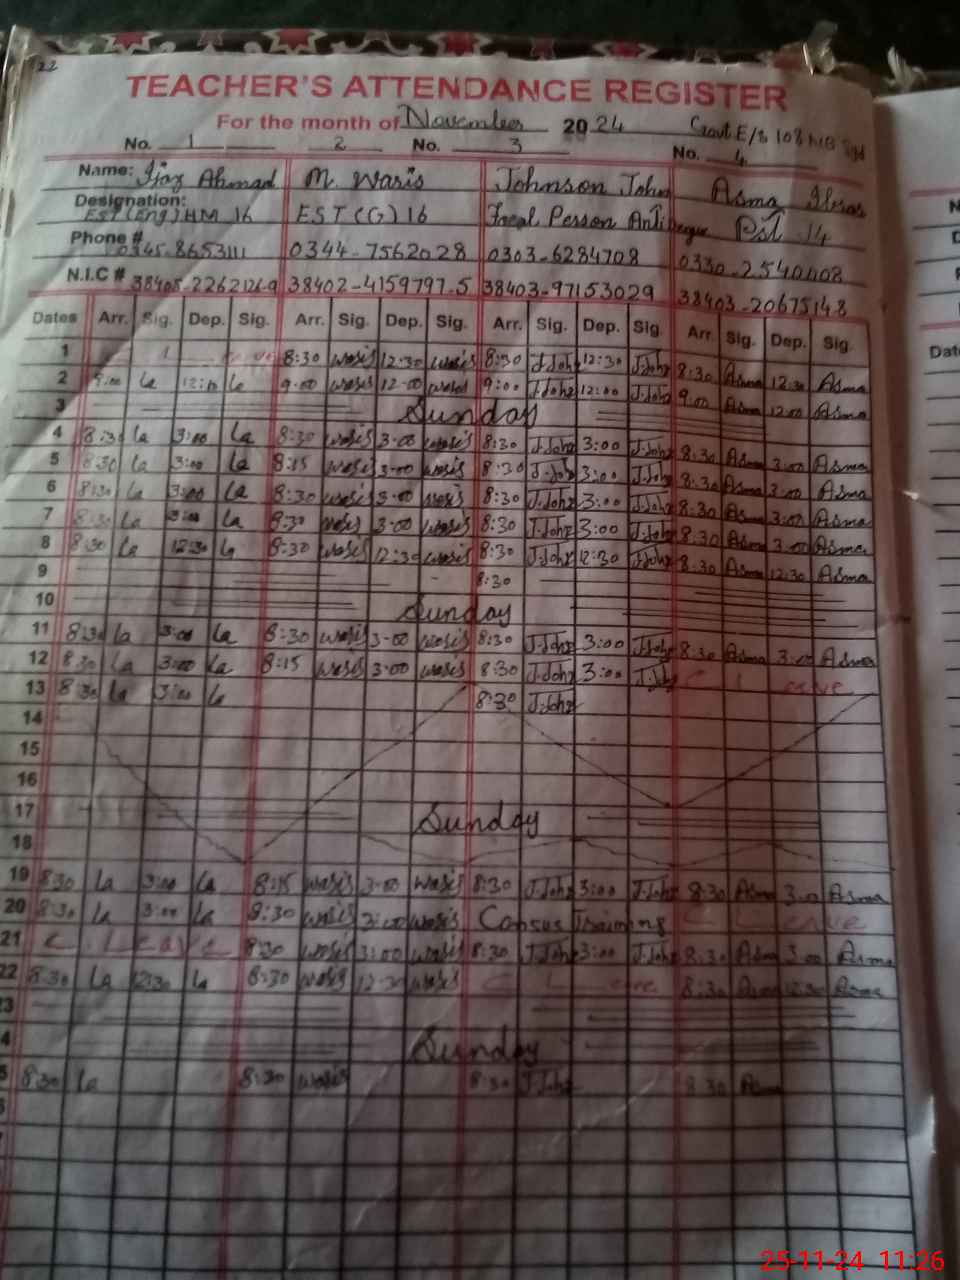 22
TEACHER'S ATTENDANCE REGISTER
For the month of November 2024 Govt E/S 108 NB
No. 1 2 No. 3 No. 4
Name: Ijaz Ahmad M. Waris Johnson John Asma
Designation: EST (Eng) HM 16 EST (G) 16 Focal Person Anti Pst 14
Phone # 0345-8653111 0344-7562028 0303-6284708 0330-2540408
N.I.C # 38405-2262126-9 38402-4159797-5 38403-97153029 38403-20675148
Dates Arr. Sig. Dep. Sig. Arr. Sig. Dep. Sig. Arr. Sig. Dep. Sig. Arr. Sig. Dep. Sig.
1 8:30 waris 12:30 waris 8:30 J.John 12:30 J.John 8:30 Asma 12:30 Asma
2 9:00 12:00 9:00 waris 12-00 waris 9:00 J.John 12:00 J.John 9:00 Asma 12:00 Asma
3 Sunday
4 8:30 3:00 8:30 waris 3-00 waris 8:30 J.John 3:00 J.John 8:30 Asma 3:00 Asma
5 8:30 3:00 8:15 waris 3-00 waris 8:30 J.John 3:00 J.John 8:30 Asma 3:00 Asma
6 8:30 3:00 8:30 waris 3-00 waris 8:30 J.John 3:00 J.John 8:30 Asma 3:00 Asma
7 8:30 3:00 8:30 waris 3-00 waris 8:30 J.John 3:00 J.John 8:30 Asma 3:00 Asma
8 8:30 12:30 8:30 waris 12:30 waris 8:30 J.John 12:30 J.John 8:30 Asma 12:30 Asma
9 8:30
10 Sunday
11 8:30 3:00 8:30 waris 3-00 waris 8:30 J.John 3:00 J.John 8:30 Asma 3:00 Asma
12 8:30 3:00 8:15 waris 3-00 waris 8:30 J.John 3:00 J.John C Leave
13 8:30 3:00 8:30 J.John
14
15
16
17 Sunday
18
19 8:30 3:00 8:15 waris 3-00 waris 8:30 J.John 3:00 J.John 8:30 Asma 3:00 Asma
20 8:30 3:00 8:30 waris 3:00 waris Census Training C Leave
21 C. Leave 8:30 waris 3:00 waris 8:30 J.John 3:00 J.John 8:30 Asma 3:00 Asma
22 8:30 12:30 8:30 waris 12-30 waris C Leave 8:30 Asma 12:30 Asma
3
4 Sunday
5 8:30 8:30 waris 8:30 J.John 8:30 Asma
25-11-24 11:26